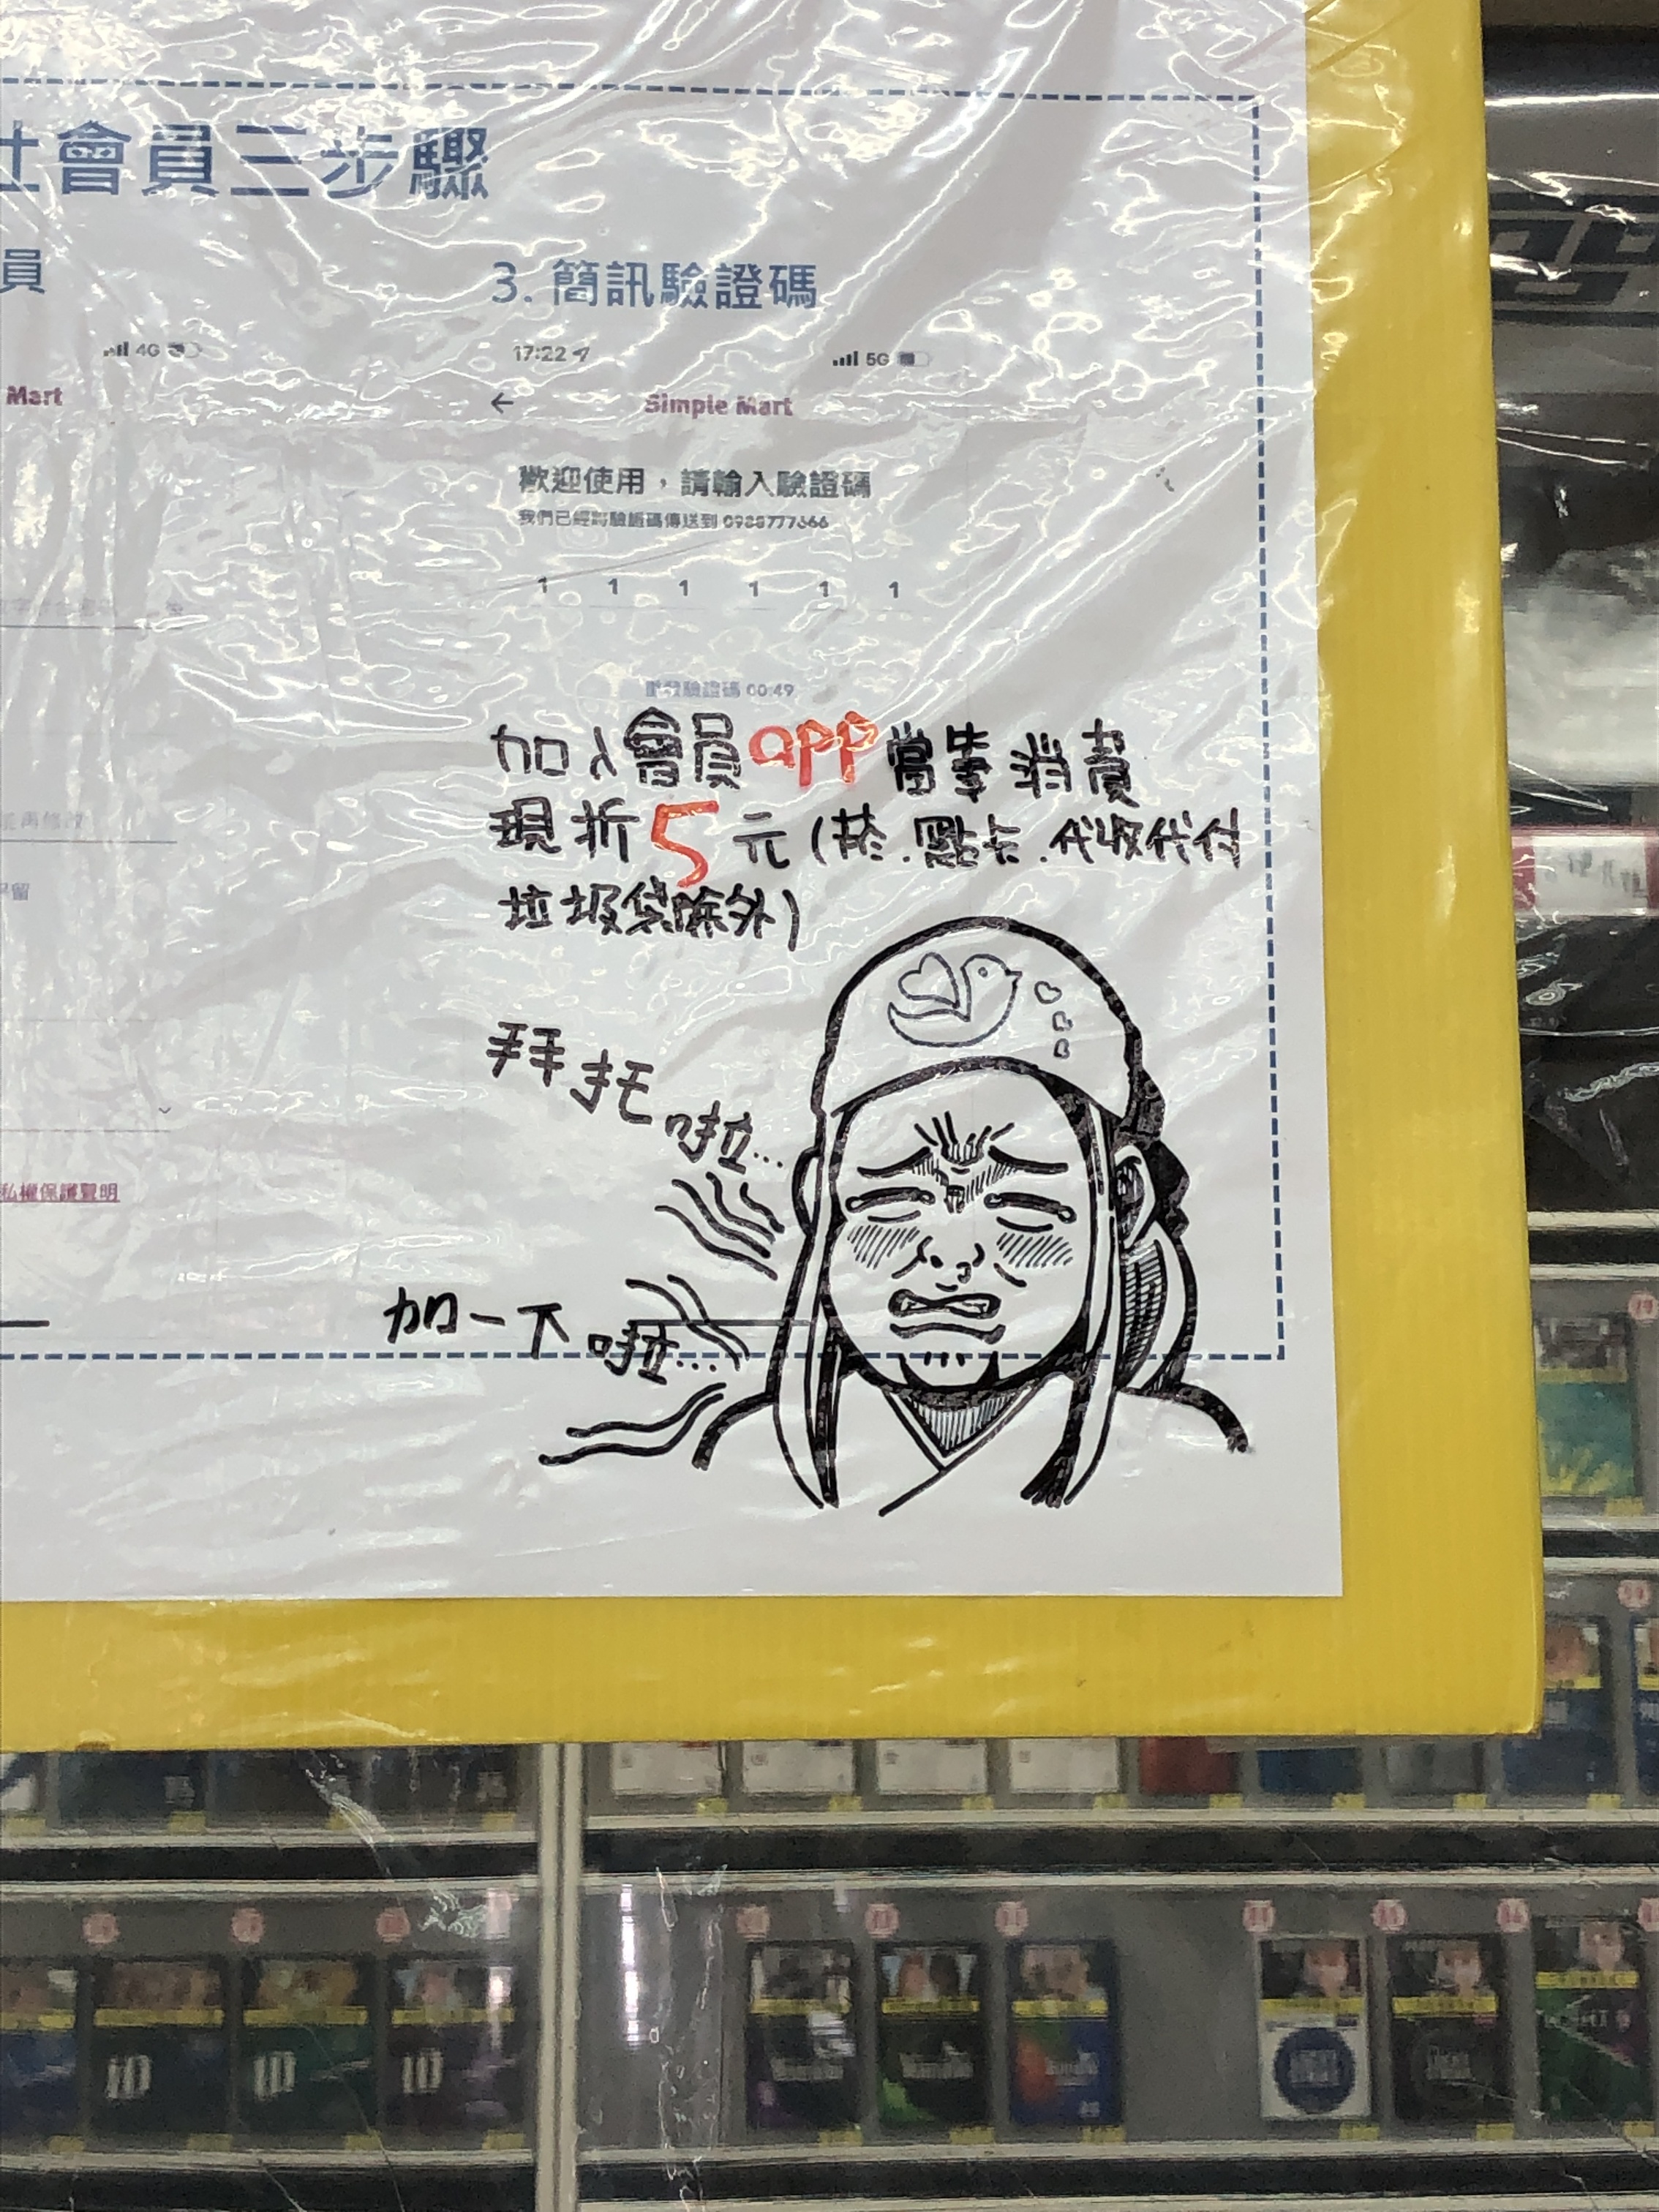 社會員三步驟
員
3. 簡訊驗證碼
4G
17:22
5G
Mart
Simple Mart
歡迎使用，請輸入驗證碼
我們已經將驗證碼傳送到 0988777666
1 1 1 1 1 1
重發驗證碼 00:49
加入會員app當筆消費
現折5元(菸.點卡.代收代付
垃圾袋除外)
拜托啦...
私權保護聲明
加一下啦...